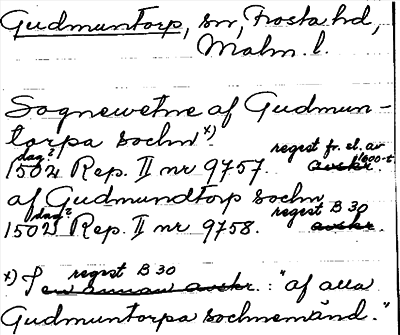 Gudmuntorp, sn, Frosta hd,
Malm. l.
Sognewetne af Gudmun-
torpa sochn x)
dag? regest fr. sl. av
1502 Rep. II nr 9757. avskr. 1600-t.
af Gudmundtorp sochn
dag? regest B 30
1502 Rep. II nr 9758. avskr.
regest B 30
x) I en annan avskr. : "af alla
Gudmuntorpa sochnemänd."